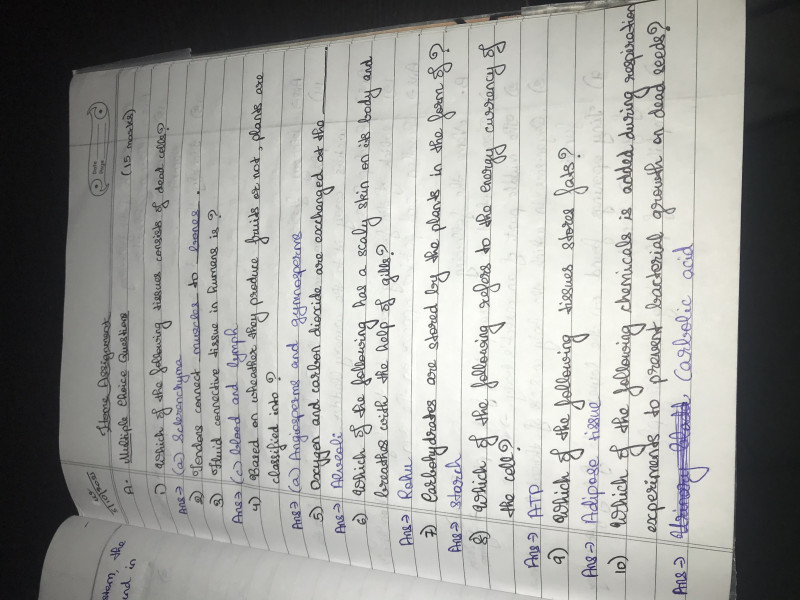 Date
Page
Home Assignment
A. Multiple Choice Questions (15 marks)
1) Which of the following tissues consists of dead cells?
Ans → (a) Sclerenchyma
2) Tendons connect muscles to bones.
3) Fluid connective tissue in humans is?
Ans → (c) blood and lymph
4) Based on wheather they produce fruits or not, plants are
classified into?
Ans → (a) Angiosperms and gymnosperms
5) Oxygen and carbon dioxide are exchanged at the
Ans → Alveoli
6) Which of the following has a scaly skin on its body and
breathes with the help of gills?
Ans → Rohu
7) Carbohydrates are stored by the plants in the form of?
Ans → Starch
8) Which of the following refers to the energy currency of
the cell?
Ans → ATP
9) Which of the following tissues stores fats?
Ans → Adipose tissue
10) Which of the following chemicals is added during respiration
experiments to prevent bacterial growth on dead seeds?
Ans → Carbolic acid
stem, the
und in